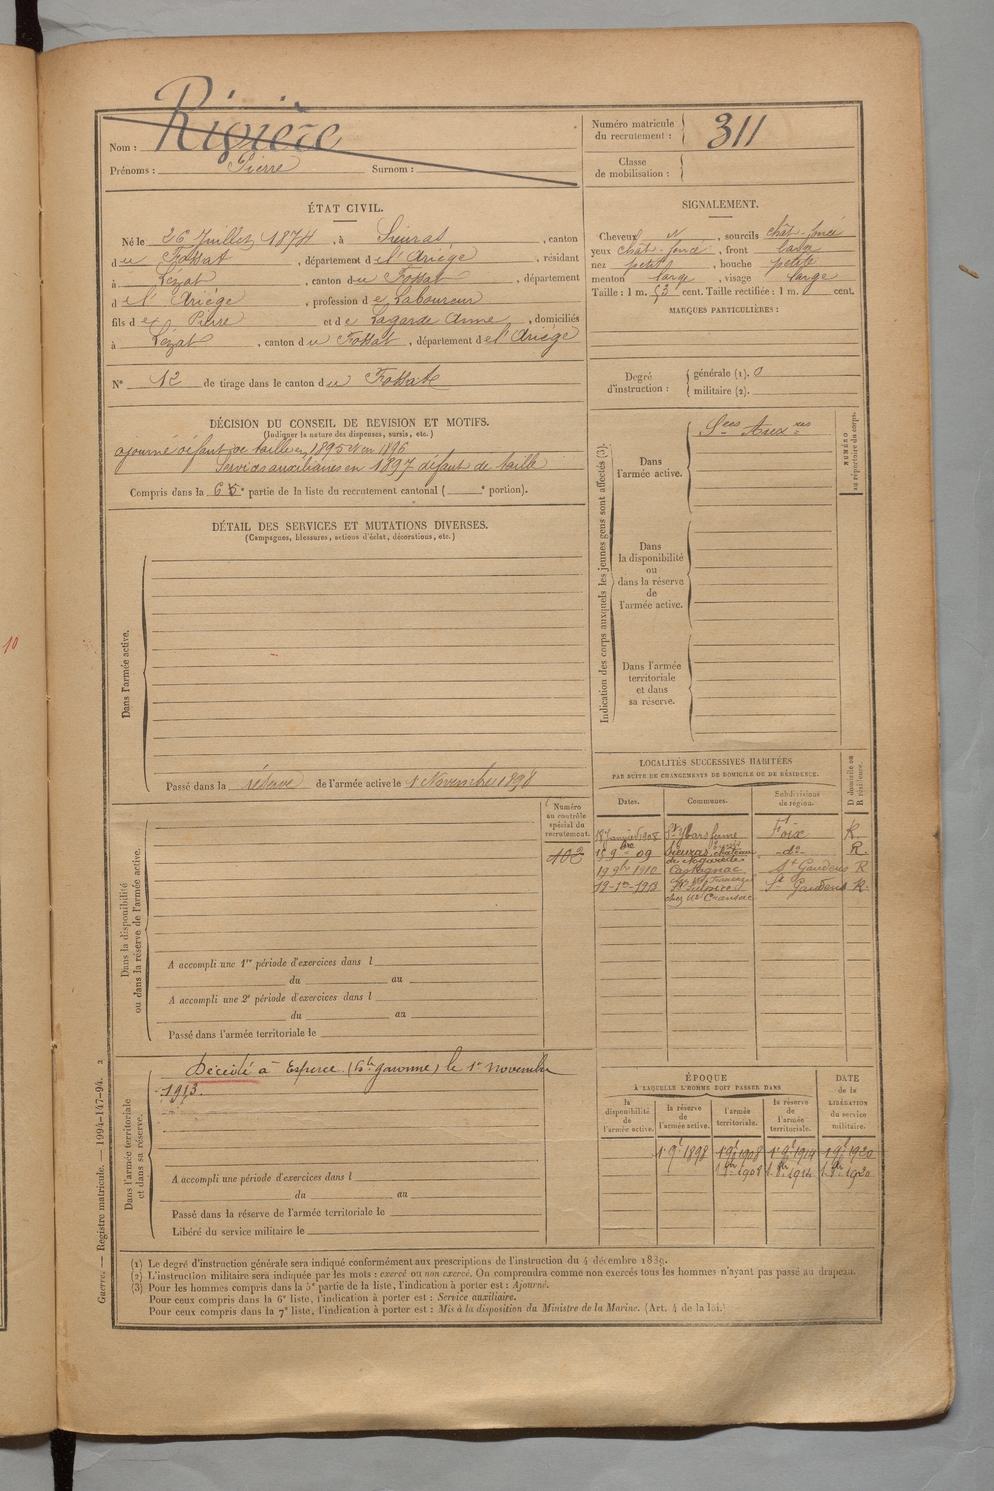 Rivière
Nom :
Prénoms : Pierre Surnom :
Numéro matricule du recrutement : 311
Classe de mobilisation :
ÉTAT CIVIL.
Né le 26 Juillet 1874, à Sieuras, canton
du Fossat, département de l'Ariège, résidant
à Lézat, canton du Fossat, département
de l'Ariège, profession de Laboureur
fils de Pierre et de Lagarde Anne, domiciliés
à Lézat, canton du Fossat, département de l'Ariège
N° 12 de tirage dans le canton du Fossat
SIGNALEMENT.
Cheveux N, sourcils chât. foncé
yeux chât. foncé, front bas
nez petit, bouche petite
menton large, visage large
Taille : 1 m. 53 cent. Taille rectifiée : 1 m. cent.
MARQUES PARTICULIÈRES :
Degré d'instruction : générale (1). 0
militaire (2).
DÉCISION DU CONSEIL DE REVISION ET MOTIFS.
(Indiquer la nature des dispenses, sursis, etc.)
ajourné défaut de taille en 1895 et en 1896
Services auxiliaires en 1897 défaut de taille
Compris dans la 6e partie de la liste du recrutement cantonal ( e portion).
DÉTAIL DES SERVICES ET MUTATIONS DIVERSES.
(Campagnes, blessures, actions d'éclat, décorations, etc.)
Dans l'armée active.
Passé dans la réserve de l'armée active le 1 Novembre 1898
Indication des corps auxquels les jeunes gens sont affectés (3).
Dans l'armée active. Sces Auxres
Dans la disponibilité ou dans la réserve de l'armée active.
Dans l'armée territoriale et dans sa réserve.
NUMÉRO au répertoire du corps.
Numéro au contrôle spécial du recrutement.
Dans la disponibilité ou dans la réserve de l'armée active.
A accompli une 1re période d'exercices dans l
du au
A accompli une 2e période d'exercices dans l
du au
Passé dans l'armée territoriale le
LOCALITÉS SUCCESSIVES HABITÉES
PAR SUITE DE CHANGEMENTS DE DOMICILE OU DE RÉSIDENCE.
Dates. Communes. Subdivisions de région. D domicile ou R résidence.
18 Janvier 1908 St Ybars ferme Foix R.
15 9bre 09 Sieuras, château do R
19 9bre 1910 Castagnac St Gaudens R
12-1-1913 St Sulpice St Gaudens R.
Dans l'armée territoriale et dans sa réserve.
Décédé à Esperce (Hte garonne) le 1er novembre
1913.
A accompli une période d'exercices dans l
du au
Passé dans la réserve de l'armée territoriale le
Libéré du service militaire le
ÉPOQUE
À LAQUELLE L'HOMME DOIT PASSER DANS
la disponibilité de l'armée active. la réserve de l'armée active. l'armée territoriale. la réserve de l'armée territoriale.
DATE de la LIBÉRATION du service militaire.
1 9b 1898 1 9b 1908 1 9b 1914 1 9b 1920
1908 1914 1920
(1) Le degré d'instruction générale sera indiqué conformément aux prescriptions de l'instruction du 4 décembre 1889.
(2) L'instruction militaire sera indiquée par les mots : exercé ou non exercé. On comprendra comme non exercés tous les hommes n'ayant pas passé au drapeau.
(3) Pour les hommes compris dans la 5e partie de la liste, l'indication à porter est : Ajourné.
Pour ceux compris dans la 6e liste, l'indication à porter est : Service auxiliaire.
Pour ceux compris dans la 7e liste, l'indication à porter est : Mis à la disposition du Ministre de la Marine. (Art. 4 de la loi.)
Guerre. — Registre matricule. — 1994-147-94.
10